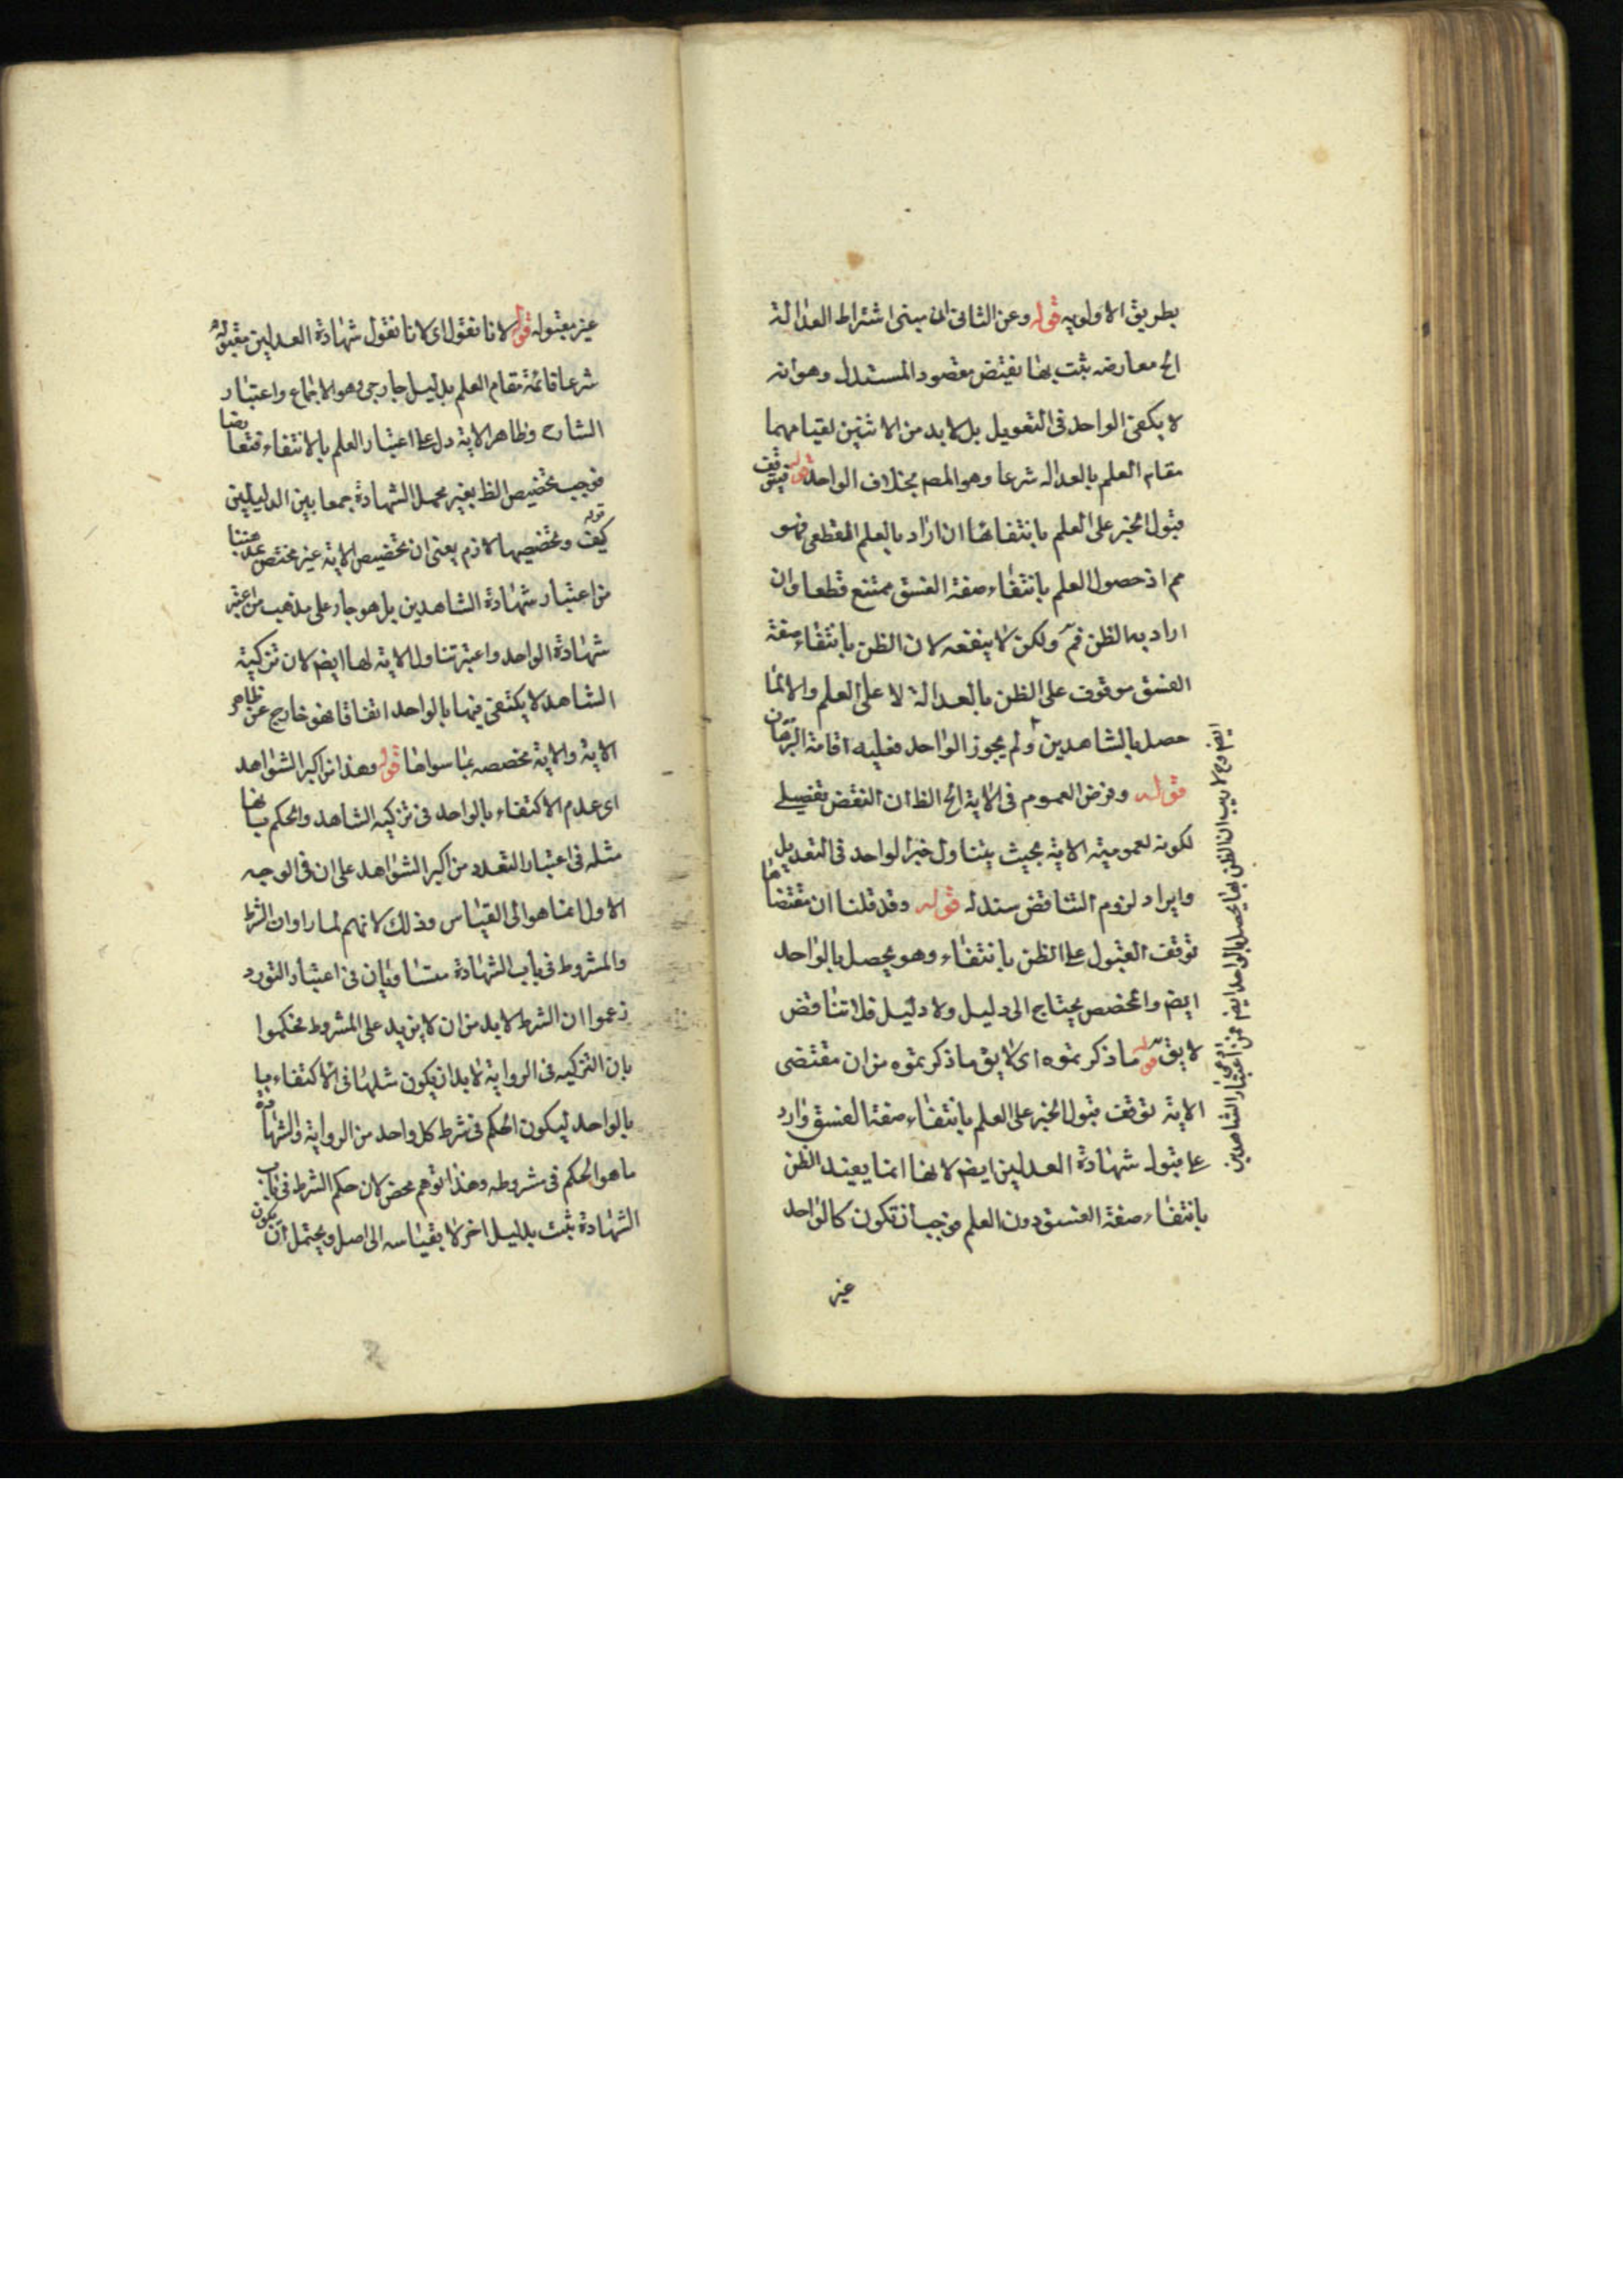 بطريق الاولويه قوله وعن الثانى ان مبنى اشتراط العدالة
الخ معارضه يثبت بها نقيض مقصود المستدل وهو انه
لا يكفى الواحد فى التعويل بل لا بد من الاثنين لقيامهما
مقام العلم بالعداله شرعا وهو المص بخلاف الواحد قوله فيتوقف
قبول الخبر على العلم بانتفائها ان اراد بالعلم القطعى فهو
مم اذ حصول العلم بانتفاء صفة الفسق ممتنع قطعا وان
اراد به الظن فم ولكن لا ينفعه لان الظن بانتفاء صفة
الفسق موقوف على الظن بالعدالة لا على العلم والا لما
حصل بالشاهدين ولم يجوز الواحد فعليه اقامة البرهان
قوله وفرض العموم فى الاية الخ الظ ان النقض تفصيلى
لكونه لعمومية الاية بحيث يتناول خبر الواحد فى التعديل
وايراد لزوم التناقض سند له قوله وقد قلنا ان مقتضاها
توقف القبول على الظن بانتفاء وهو يحصل بالواحد
ايض والمخصص يحتاج الى دليل ولا دليل فلا تناقض
لا يق قوله ما ذكرتموه اى لا يق ما ذكرتموه من ان مقتضى
الاية توقف قبول الخبر على العلم بانتفاء صفة الفسق وارد
على قبول شهادة العدلين ايض لانها انما يفيد الظن
بانتفاء صفة الفسق دون العلم فوجب ان تكون كالواحد
غير
ايض وح لا ريب ان الظن بها يحصل بالواحد ايض
اعتبار الشاهدين
غير مقبوله قوله لانا نقول اى لانا نقول شهادة العدلين مقبولة
شرعا قائمة مقام العلم بدليل خارجى وهو الاجماع واعتبار
الشارح وظاهر الاية دل على اعتبار العلم بالانتفاء فتعارضا
فوجب تخصيص الظ بغير محمل الشهادة جمعا بين الدليلين
قوله كيف وتخصيصها لازم يعنى ان تخصيص الاية غير مختص بمذهبنا
من اعتبار شهادة الشاهدين بل هو جار على مذهب من اعتبر
شهادة الواحد واعتبر تناول الاية لها ايض لان تزكية
الشاهد لا يكتفى فيها بالواحد اتفاقا فهو خارج عن ظاهر
الاية والاية مخصصه بما سواها قوله وهذا من اكبر الشواهد
اى عدم الاكتفاء بالواحد فى تزكيه الشاهد والحكم بانها
مثله فى اعتبار التعدد من اكبر الشواهد على ان فى الوجه
الاول انما هو الى القياس وذلك لانهم لما راوا ان الشرط
والمشروط فى باب الشهادة متساويان فى اعتبار التورد
زعموا ان الشرط لا بد من ان لا يزيد على المشروط فحكموا
بان التزكيه فى الرواية لا بد ان يكون مثلها فى الاكتفاء بها
بالواحد ليكون الحكم فى شرط كل واحد من الرواية والشهادة
ما هو الحكم فى مشروطه وهذا توهم محض لان حكم الشرط فى باب
الشهادة ثبت بدليل اخر لا بقياسه الى اصل ويحتمل ان يكون